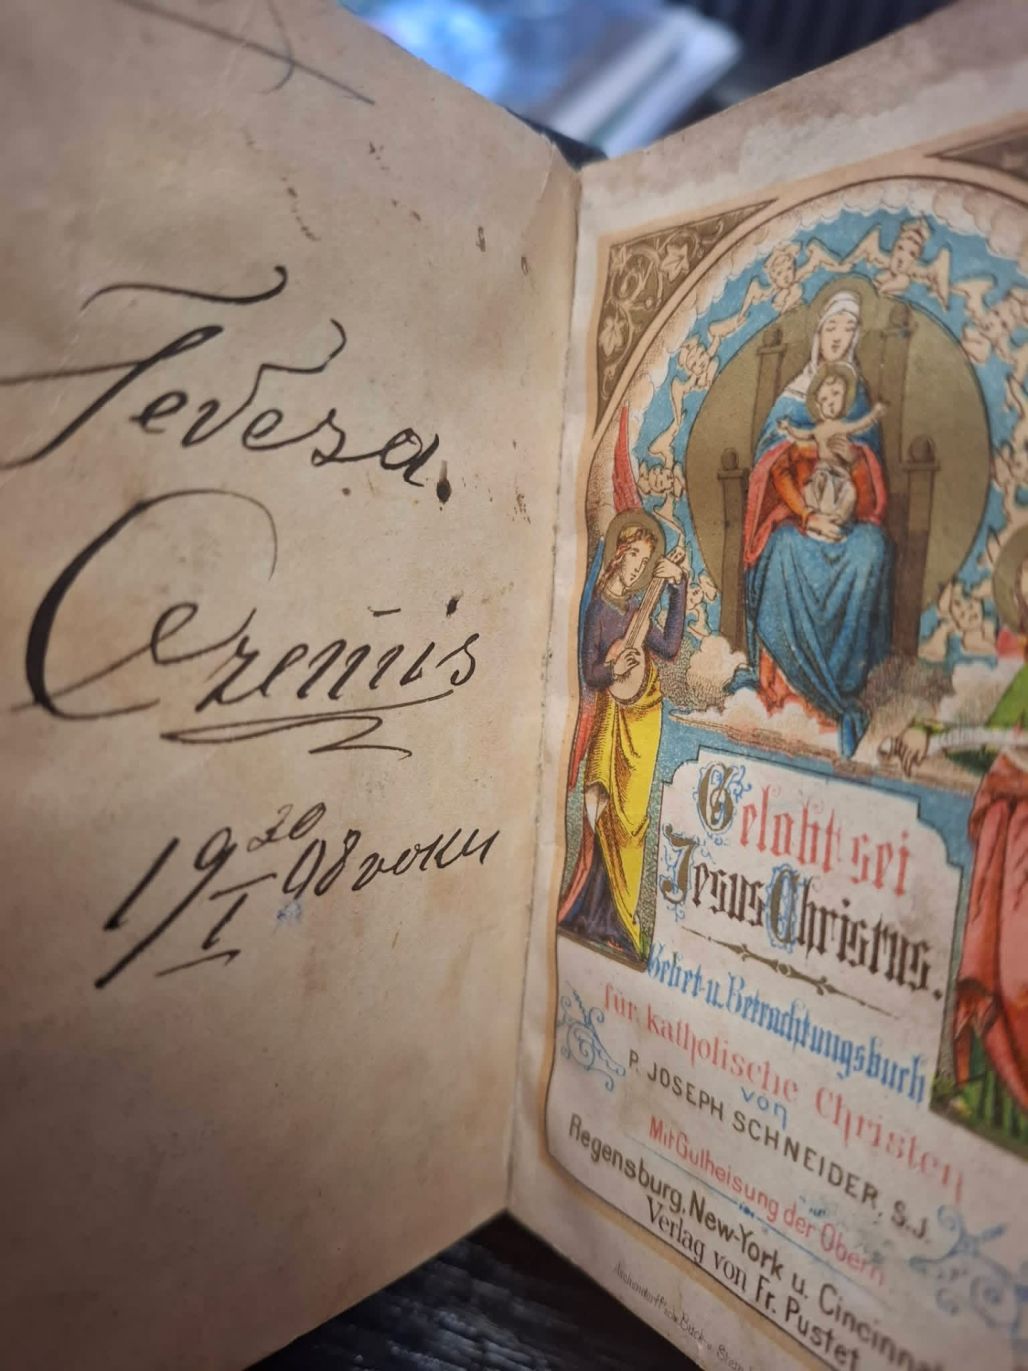 Tereza
Czemis
19 30/I 08 roku
Gelobt sei
Jesus Christus.
Gebet- u. Betrachtungsbuch
für katholische Christen
von
P. JOSEPH SCHNEIDER, S.J.
Mit Gutheisung der Obern
Regensburg, New-York u. Cincinna
Verlag von Fr. Pustet